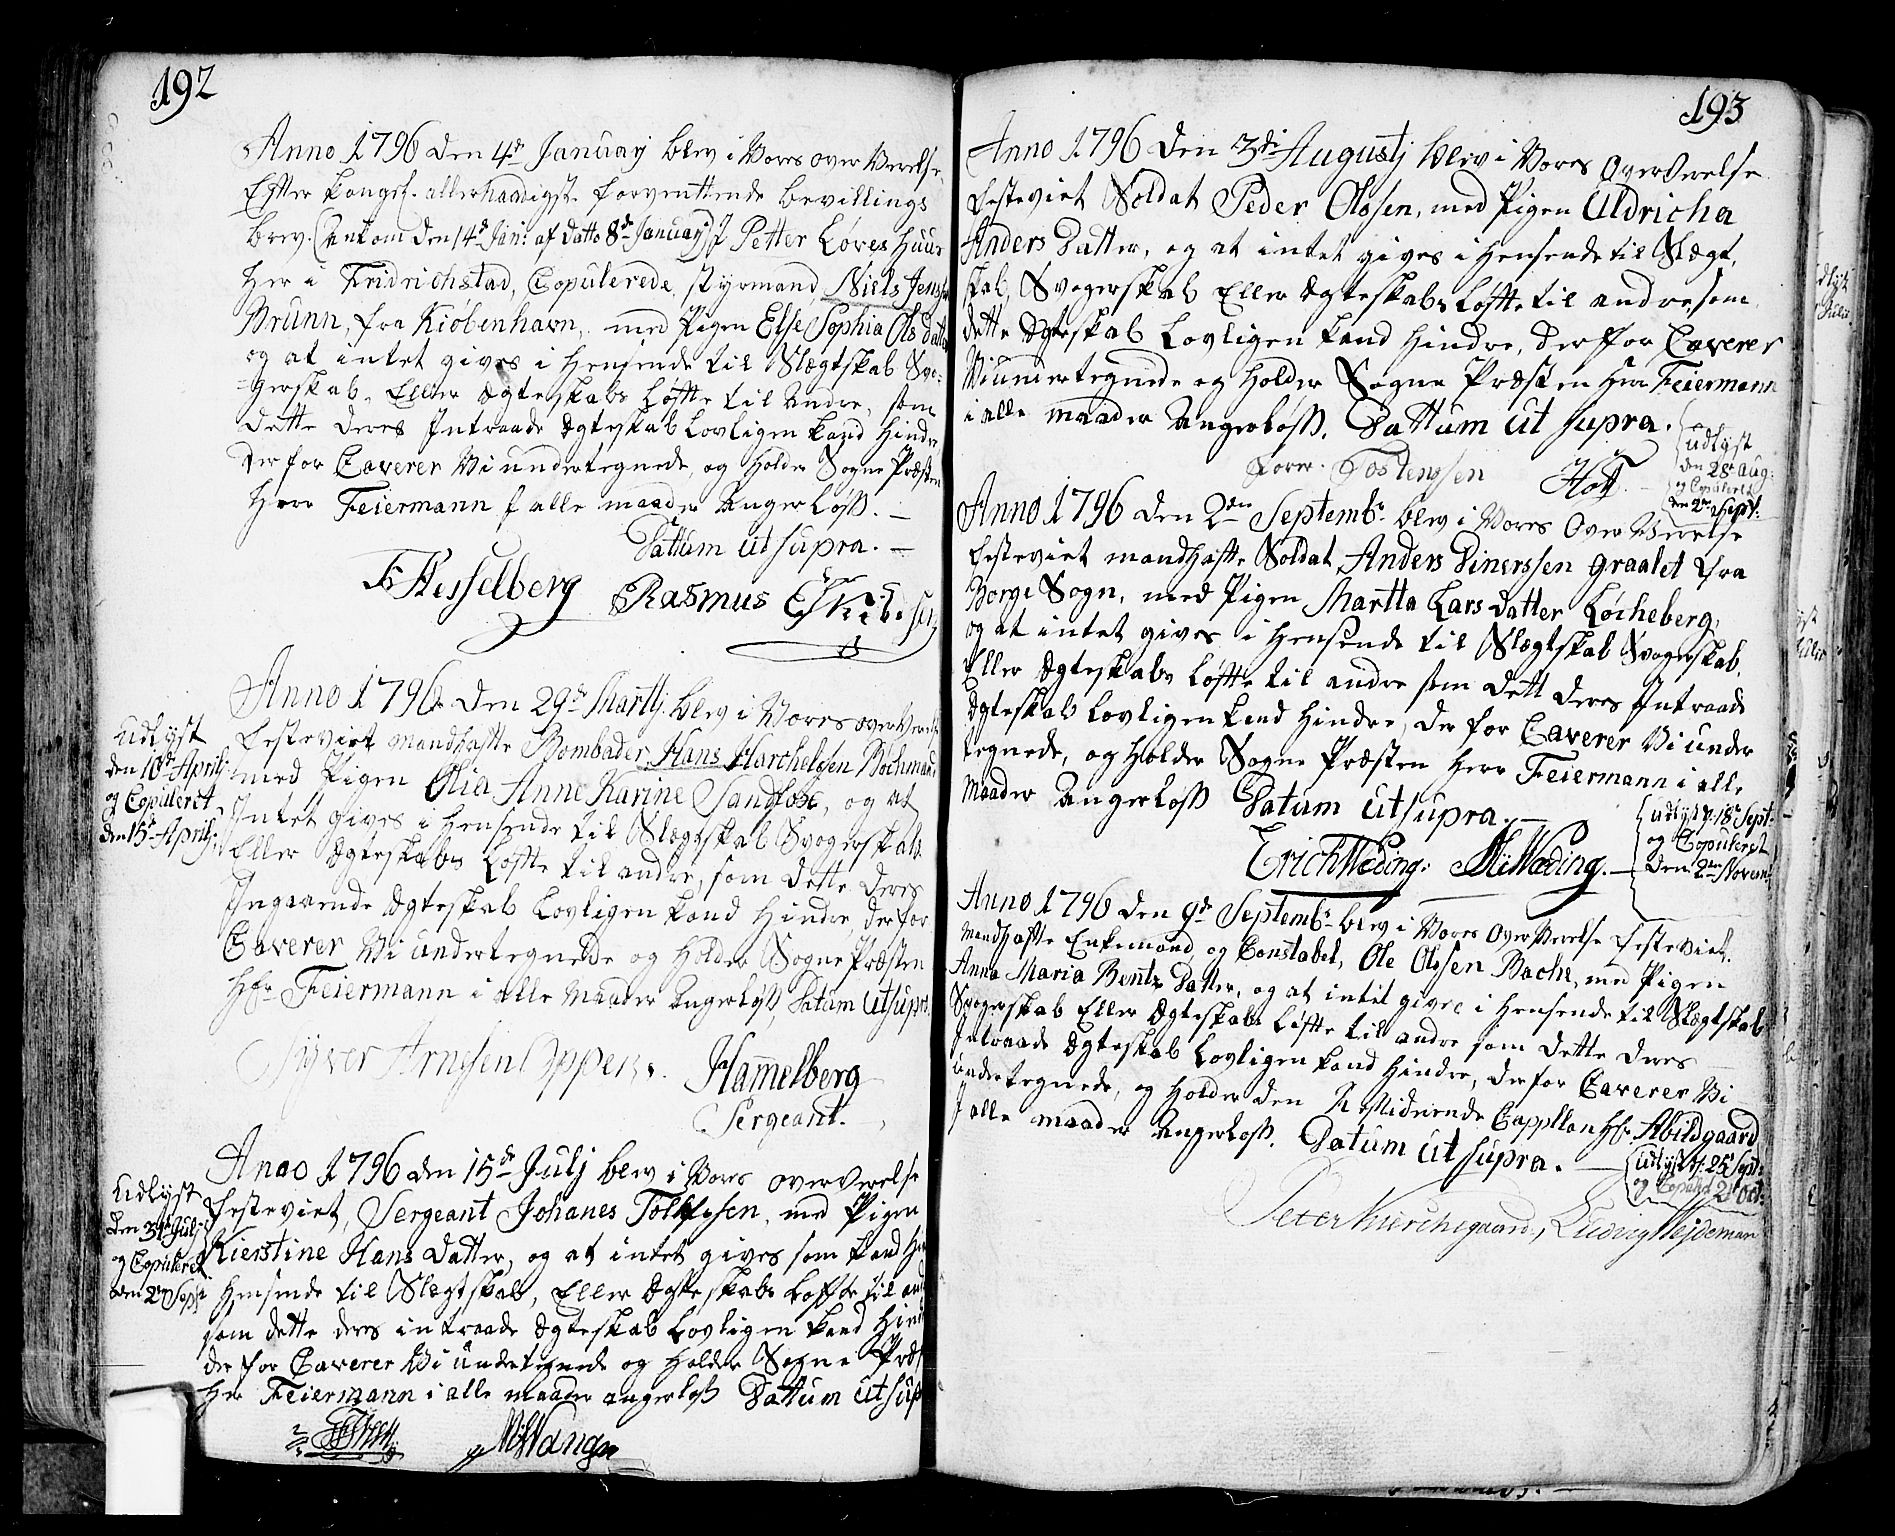 192
Anno 1796 den 4de January blev i Vores over Verelse,
Efter kongel. allernaadigst forventtende bevillings
brev. (Ankom den 14de Jan: af datto 8de January) J Petter Løves Huus
her i Fridrichstad, Copulerede styrmand Niels Jenss
Brunn, fra Kiøbenhavn, med Pigen Else Sophia Ols datter
og at intet gives i Hensende til Slægtskab Svo-
gerskab, Eller Ægteskabs Løfte til andre, som
dette deres Intraade Ægteskab Lovligen kand Hindre,
der for Caverer Vi undertegnede, og holder Sogne Præsten
Herr Feiermann J alle maader angerløss. —
Datum ut supra. —
Hesselberg Rasmus Eskildsen
Udlyst
den 10de Aprilj
og Copuleret
den 15de Aprilj:
Anno 1796 den 29de Martj blev i Vores over Verelse
festeviet mandhafte Bombader Hans Harchelssen Bochmand
med Pigen Olia Anne Karine Sandfose, og at
Intet gives i Hensende til Slægtskab Svogerskab
Eller Ægteskabs Løfte til andre, som dette deres
Ingaaende Ægteskab Lovligen kand Hindre, der for
Caverer Vi undertegnede og holder Sogne Præsten
Hr Feiermann i alle maader angerløss, Datum ut supra
Syver Arnesen Oppen. Hammelberg
Sergeant.
Udlyst
den 31te Julj
og Copuleret
den 2den Sept
Anno 1796 den 15de Julj blev i Vores over Verelse
festeviet, Sergeant Johanes Tollefsen, med Pigen
Kierstine Hans datter, og at intet gives som kand
Hensende til Slegtskab, Eller Ægteskabs Løffte til and
som dette deres intraade Ægteskab Lovligen kand Hind
der for Caverer Vi undetegnede og holder Sogne Præs
Her Feiermann i alle maader angerløss Dattum ut sup
Wangn
193
Anno 1796 den 3die Augustj blev i Vores over Verelse
festeviet Soldat Peder Olssen, med Pigen Uldricha
Anders Datter, og at intet gives i Hensende til Slægt,
skab, Svogerskab Eller Ægteskabs Løfte til andre, som
dette Ægteskab Lovligen kand Hindre, der for Caverer
Vi undertegnede og holder Sogne Præsten Herr Feiermann
i alle maader angerløss. Dattum ut supra.
Udlyst
den 28de Aug:
og Copuleret
den 2den Sept:
Tostenssen Hoff.
Anno 1796 den 2den Septembr. blev i Vores Over Verelse
festeviet mandhafte Soldat Anders Dinerssen Graalet fra
Borge Sogn, med Pigen Martta Lars datter Løcheberg,
og at intet gives i Hensende til Slægtskab Svogerskab,
Eller Ægteskabs Løfte til andre som dett deres Intraade
Ægteskab Lovligen kand Hindre, der for Caverer Vi under
tegnede, og holder Sogne Præsten Herr Feiermann i alle
Maader angerløss Datum ut supra. —
Udlyst d. 18de Sept:
og Copuleret
den 2den Novem:
Erich Weding: Weding. —
Anno 1796 den 9de Septembr. blev i Vores Over Verelse festeviet,
Mandhafte Enkemand, og Constabel, Ole Olssen Bache, med Pigen
Anna Maria Bents Datter, og at intet gives i Hensende til Slægtskab
Svogerskab Eller Ægteskabs Løfte til andre som dette deres
Intraade Ægteskab Lovligen kand Hindre, der for Caverer Vi
undertegnede, og holder den Residerende Cappellan Hr. Abildgaard
J alle maader angerløss. Datum ut supra. —
Udlyst d. 25de Sept:
og Copuleret 21de Oct:
Peter Kirchegaard, Ludvig Wejdeman